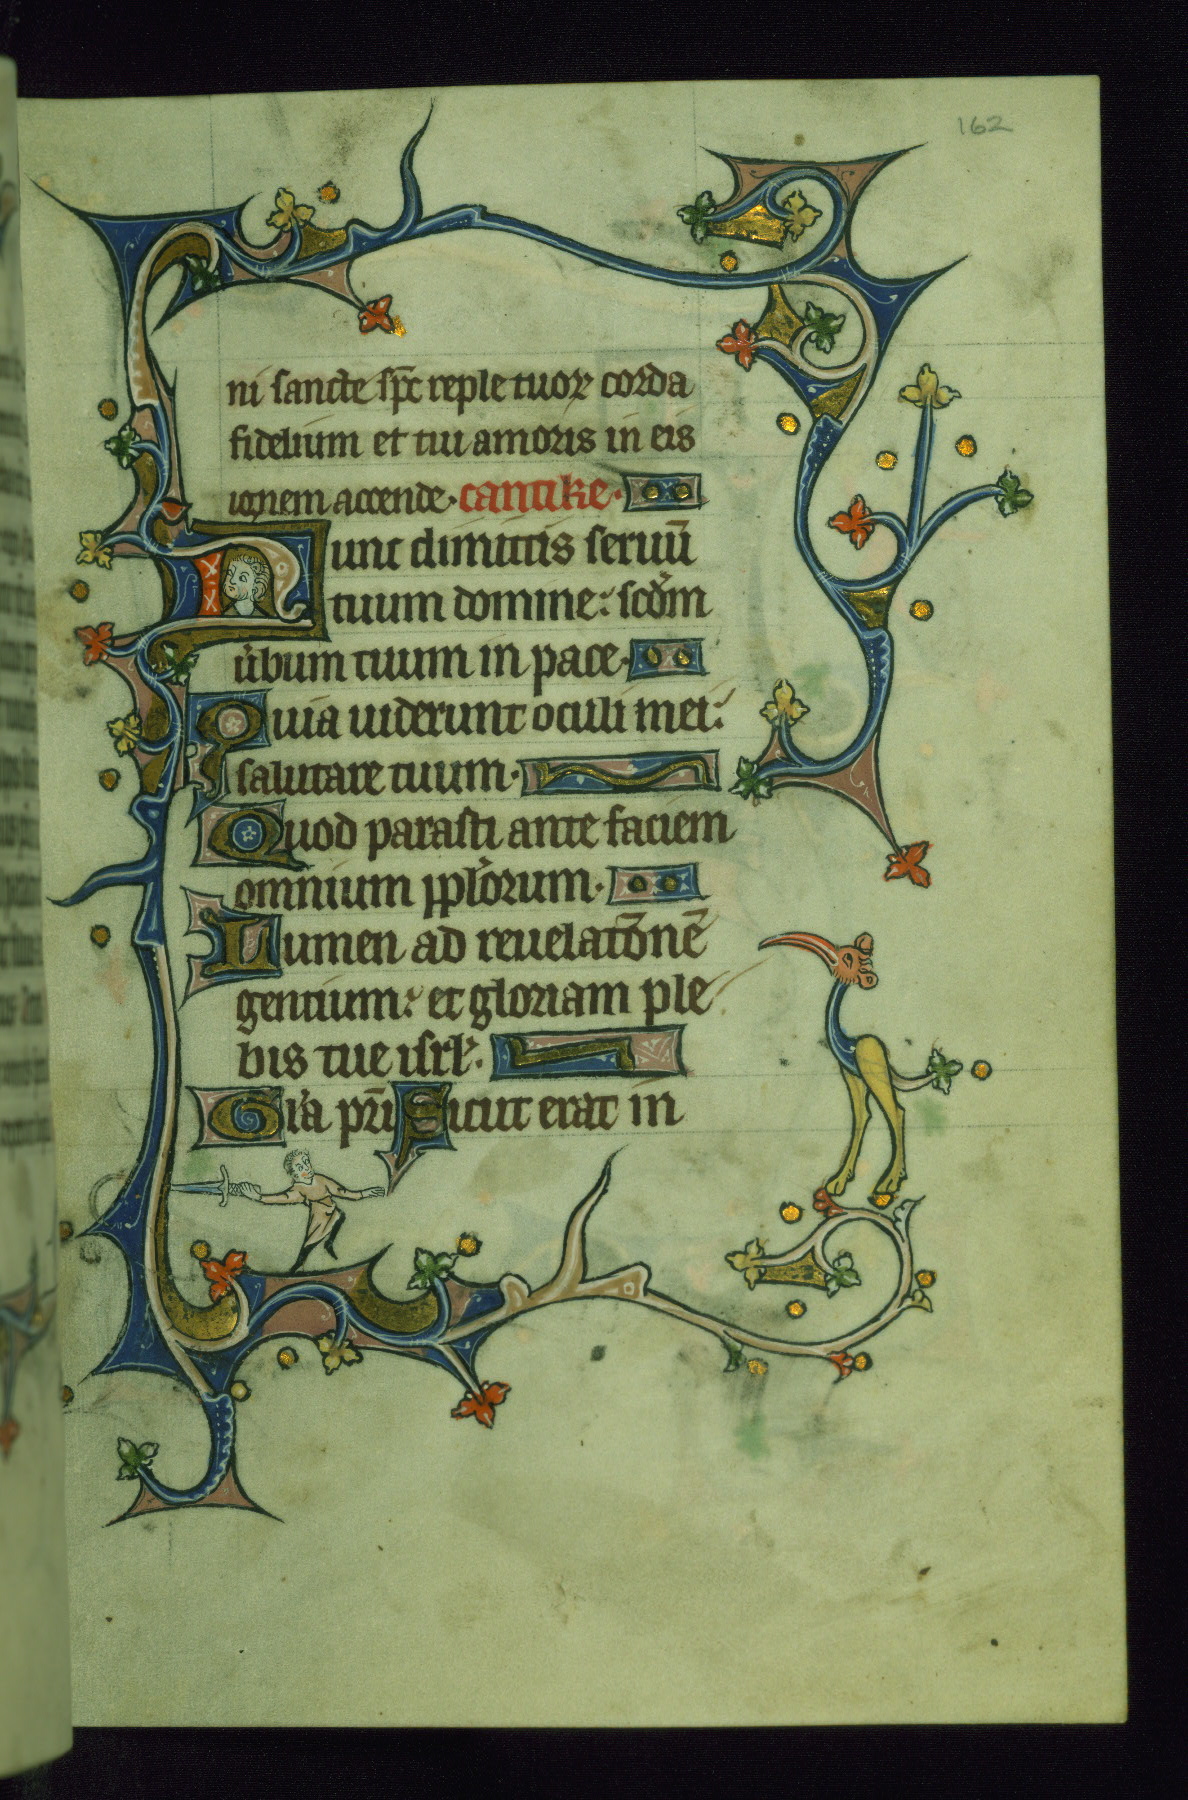 162
ni sancte sp̄c reple tuoꝝ corda
fidelium et tui amoris in eis
ignem accende. cantike.
Nunc dimittis seruū
tuum domine: scd̓m
u̓bum tuum in pace.
Quia uiderunt oculi mei:
salutare tuum.
Quod parasti ante faciem
omnium ppl̓orum.
Lumen ad reuelatōnē
gentium: et gloriam ple
bis tue isrl̓.
Gl̓a pr̄i Sicut erat in